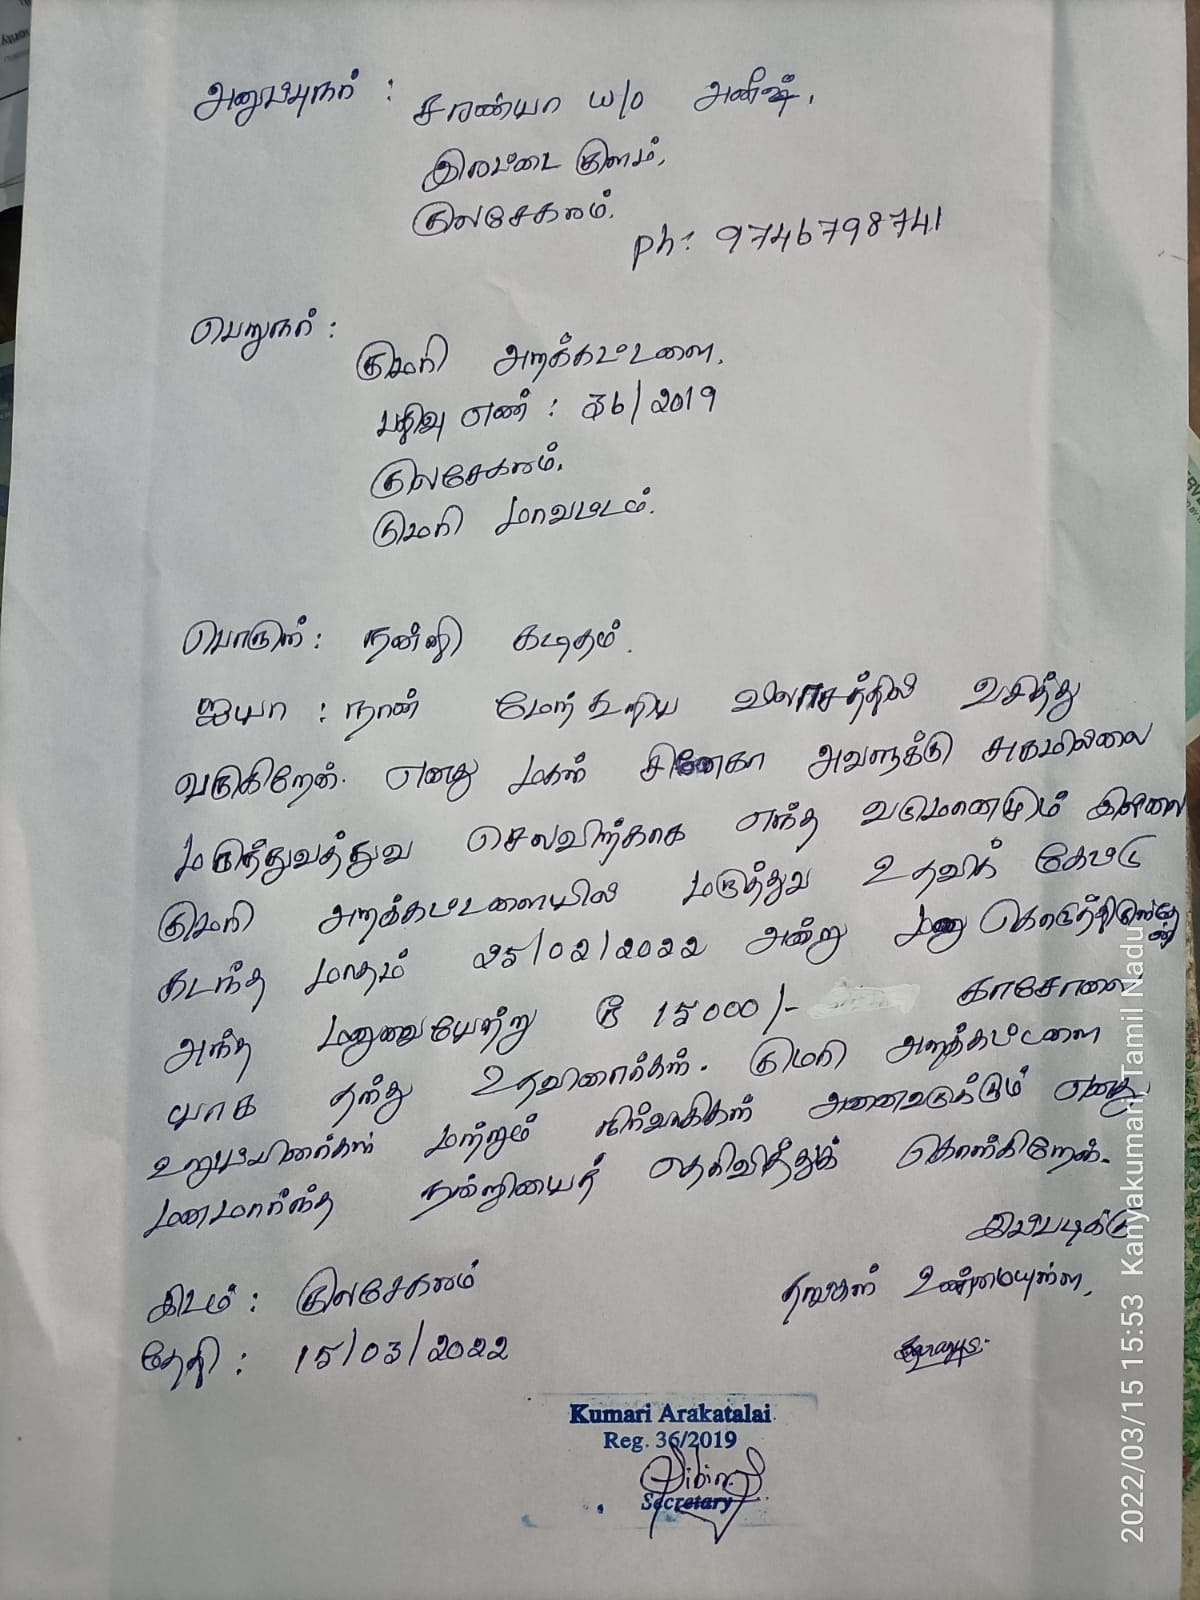 அனுப்புநர் : சரண்யா w/o அனீஷ்,
இலட்டை குளம்,
குலசேகரம்.
ph: 9746798741
பெறுநர் :
குமரி அறக்கட்டளை,
பதிவு எண் : 36/2019
குலசேகரம்,
குமரி மாவட்டம்.
பொருள் : நன்றி கடிதம்.
ஐயா : நான் மேற்கூறிய விலாசத்தில் வசித்து
வருகிறேன். எனது மகள் சினேகா அவளுக்கு சுகமில்லை
மருத்துவத்துவ செலவிற்காக எந்த வருமானமும் இல்லை
குமரி அறக்கட்டளையில் மருத்துவ உதவிக் கேட்டு
கடந்த மாதம் 25/02/2022 அன்று மனு கொடுத்திருந்தேன்
அந்த மனுவையேற்று ரூ 15000/- காசோலை
யாக தந்து உதவினார்கள். குமரி அறக்கட்டளை
உறுப்பினர்கள் மற்றும் நிர்வாகிகள் அனைவருக்கும் எனது
மனமார்ந்த நன்றியைத் தெரிவித்துக் கொள்கிறேன்.
இப்படிக்கு
இடம் : குலசேகரம் தங்கள் உண்மையுள்ள,
தேதி : 15/03/2022
Kumari Arakatalai
Reg. 36/2019
Secretary
2022/03/15 15:53 Kanyakumari, Tamil Nadu